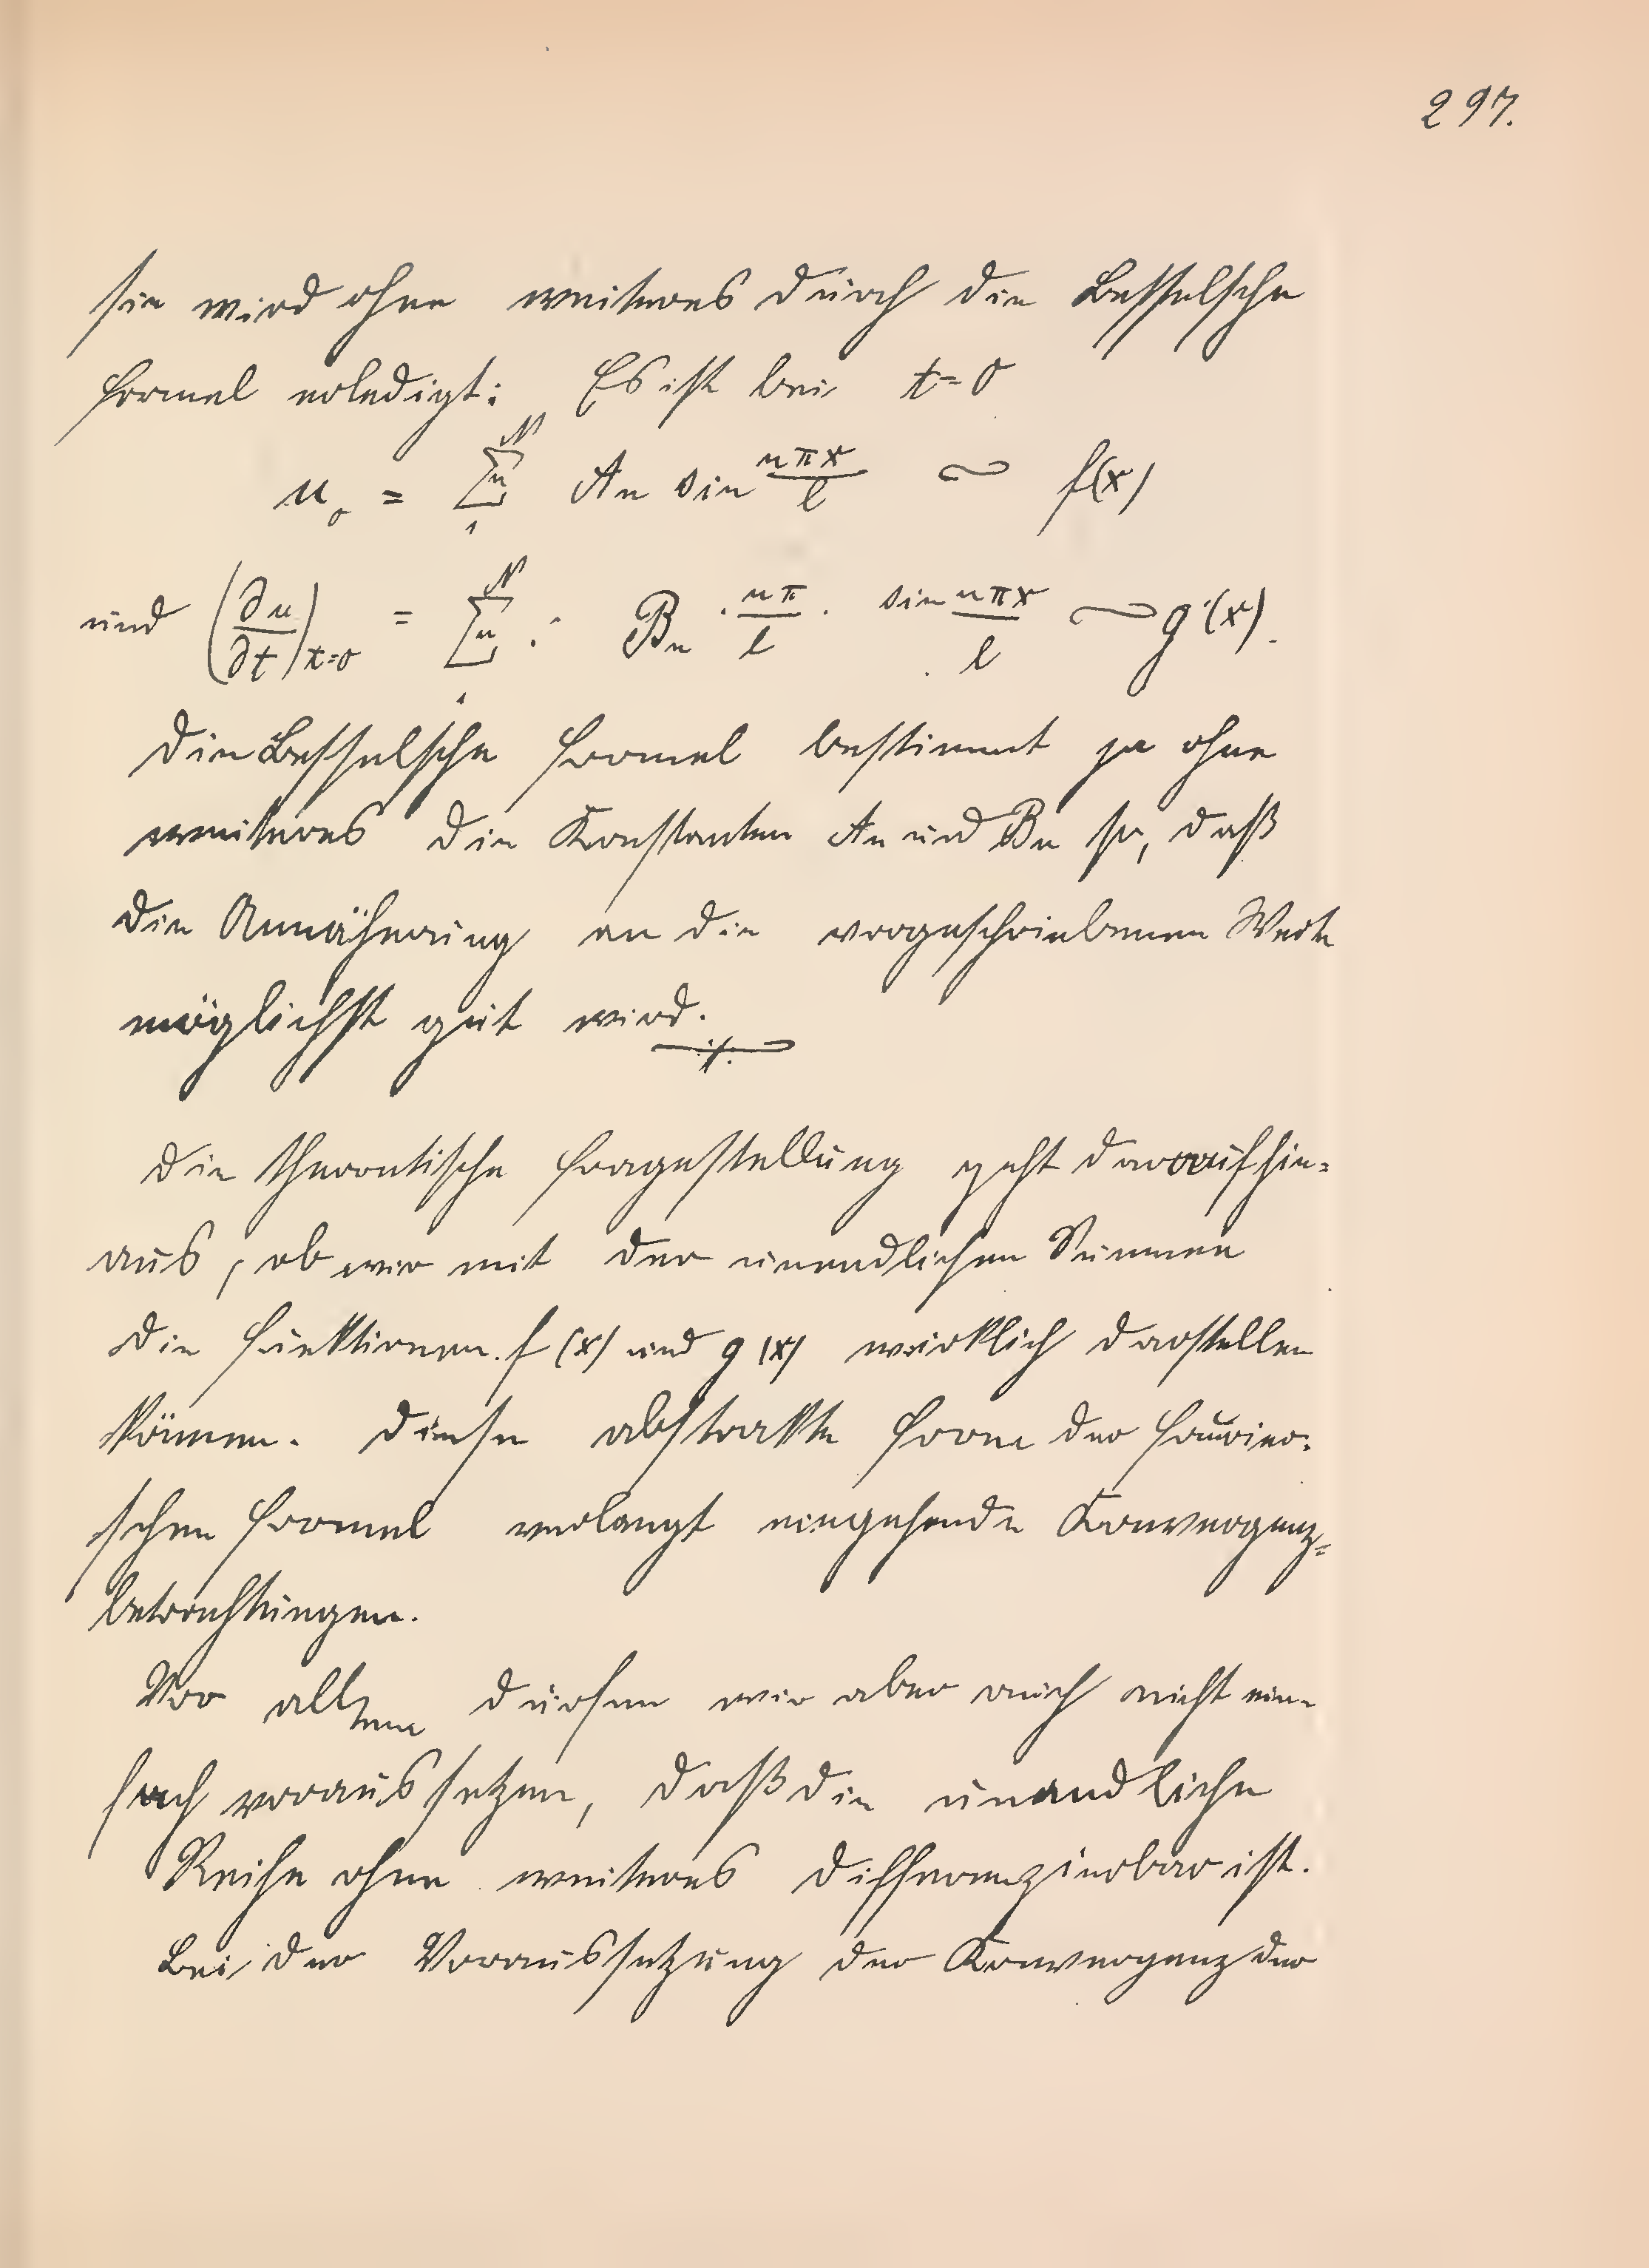 297.
sie wird ohne weiteres durch die Besselsche
Formel erledigt: Es ist bei t=0
u₀ = Σₙ₁ᴺ An sin nπx/l ∽ f(x)
und (∂u/∂t)t=0 = Σₙ₁ᴺ : Bn · nπ/l · sin nπx/l ∽ g(x).
Die Besselsche Formel bestimmt ja ohne
weiteres die Konstanten An und Bn so, daß
die Annäherung an die vorgeschriebenen Werte
möglichst gut wird.
Die theoretische Fragestellung geht darauf hin=
aus, ob wir mit der unendlichen Summen
die Funktionen f(x) und g(x) wirklich darstellen
können. Diese abstrakte Form der Fourier=
schen Formel verlangt eingehende Konvergenz=
betrachtungen.
Vor allem dürfen wir aber auch nicht ein=
fach voraussetzen, daß die unendliche
Reihe ohne weiteres differenzierbar ist.
Bei der Voraussetzung der Konvergenz der